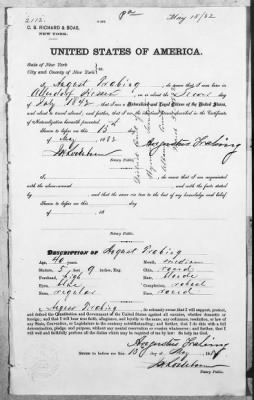 2112.
C. B. RICHARD & BOAS,
NEW YORK.
May 15/82
UNITED STATES OF AMERICA.
State of New York
City and County of New York
I, August Trebing, do swear that I was born in
on or about the day
of July 1842, that I am a Naturalized and Loyal Citizen of the United States,
and about to travel abroad, and further, that I am the identical Person described in the Certificate
of Naturalization herewith presented.
Sworn to before me this 15
day of May 1882
Notary Public.
I, do swear that I am acquainted
with the above-named and with the facts stated
by and that the same are true to the best of my knowledge and belief
Sworn to before me this
day of 18
Notary Public.
DESCRIPTION OF August Trebing
Age, 40 years
Mouth, medium
Stature, 5 feet 9 inches, Eng.
Chin, round
Forehead, high
Hair, blonde
Eyes, blue
Complexion,
Nose, regular
Face, round
I, August Trebing, do solemnly swear that I will support, protect,
and defend the Constitution and Government of the United States against all enemies, whether domestic or
foreign; and that I will bear true faith, allegiance, and loyalty to the same, any ordinance, resolution, or law of
any State, Convention, or Legislature to the contrary notwithstanding; and further, that I do this with a full
determination, pledge, and purpose, without any mental reservation or evasion whatsoever; and further, that I
will well and faithfully perform all the duties which may be required of me by law: So help me God.
Sworn to before me this 15 day of May 188
Notary Public.